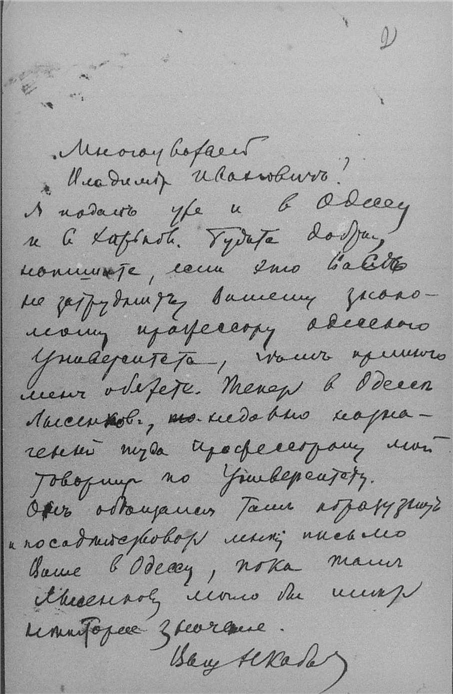 2
Многоуважаем
Владиміръ Ивановичъ!
Я подалъ уже и в Одессу
и в Харьков. Будьте добры,
напишите, если это васъ
не затруднитъ Вашему знако-
мому профессору одесского
Университета, чѣмъ премного
меня обяжете. Теперь в Одессѣ
Лысенков, недавно назна-
ченный туда профессором мой
товарищ по Университету.
Онъ обещался тамъ
и письмо
Ваше в Одессу, пока тамъ
Лысенкову было бы
некоторое значение.
Ваш